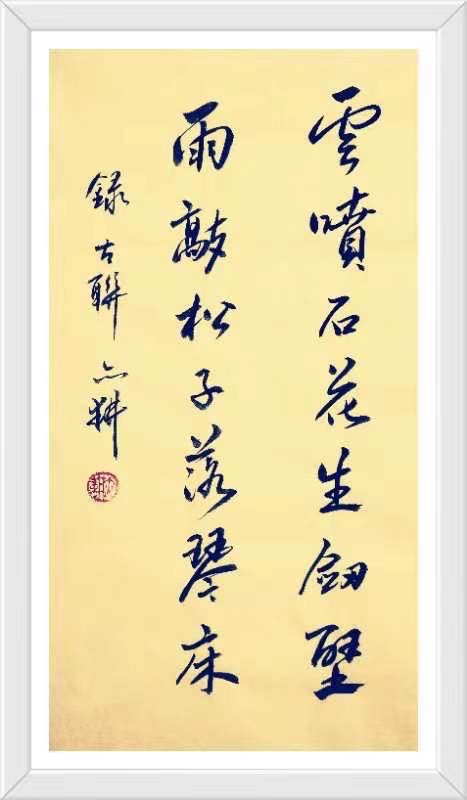 雲噴石花生劒壁
雨敲松子落琴床
録古聯 亦耕